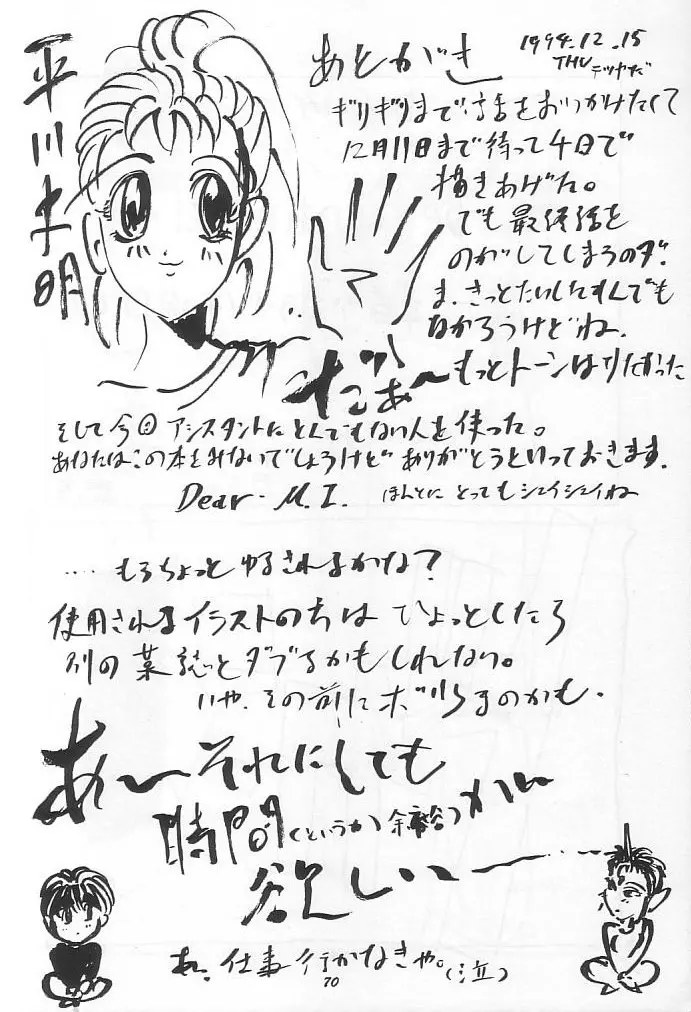 平川
明
あとがき
1994.12.15
THU
テツヤだ
ギリギリまで話をおいかけたくて
12月11日まで待って4日で
描きあげた。
でも最終話を
のがしてしまうのダ。
ま、きっとたいしたもんでも
なかろうけどね。
だぁ〜もっとトーンはりたかった
そして今回アシスタントにとんでもない人を使った。
あなたはこの本をみないでしょうけどありがとうといっておきます。
Dear・M.I. ほんとに とっても シェイシェイね
‥‥もうちょっとゆるされるかな?
使用されるイラストのちは ひょっとしたら
別の 誌とダブるかもしれない。
いや、その前にボツになるのかも・
あ〜それにしても
時間(というか 余裕)が
欲しい〜
あ、仕事行かなきゃ。(泣)
70